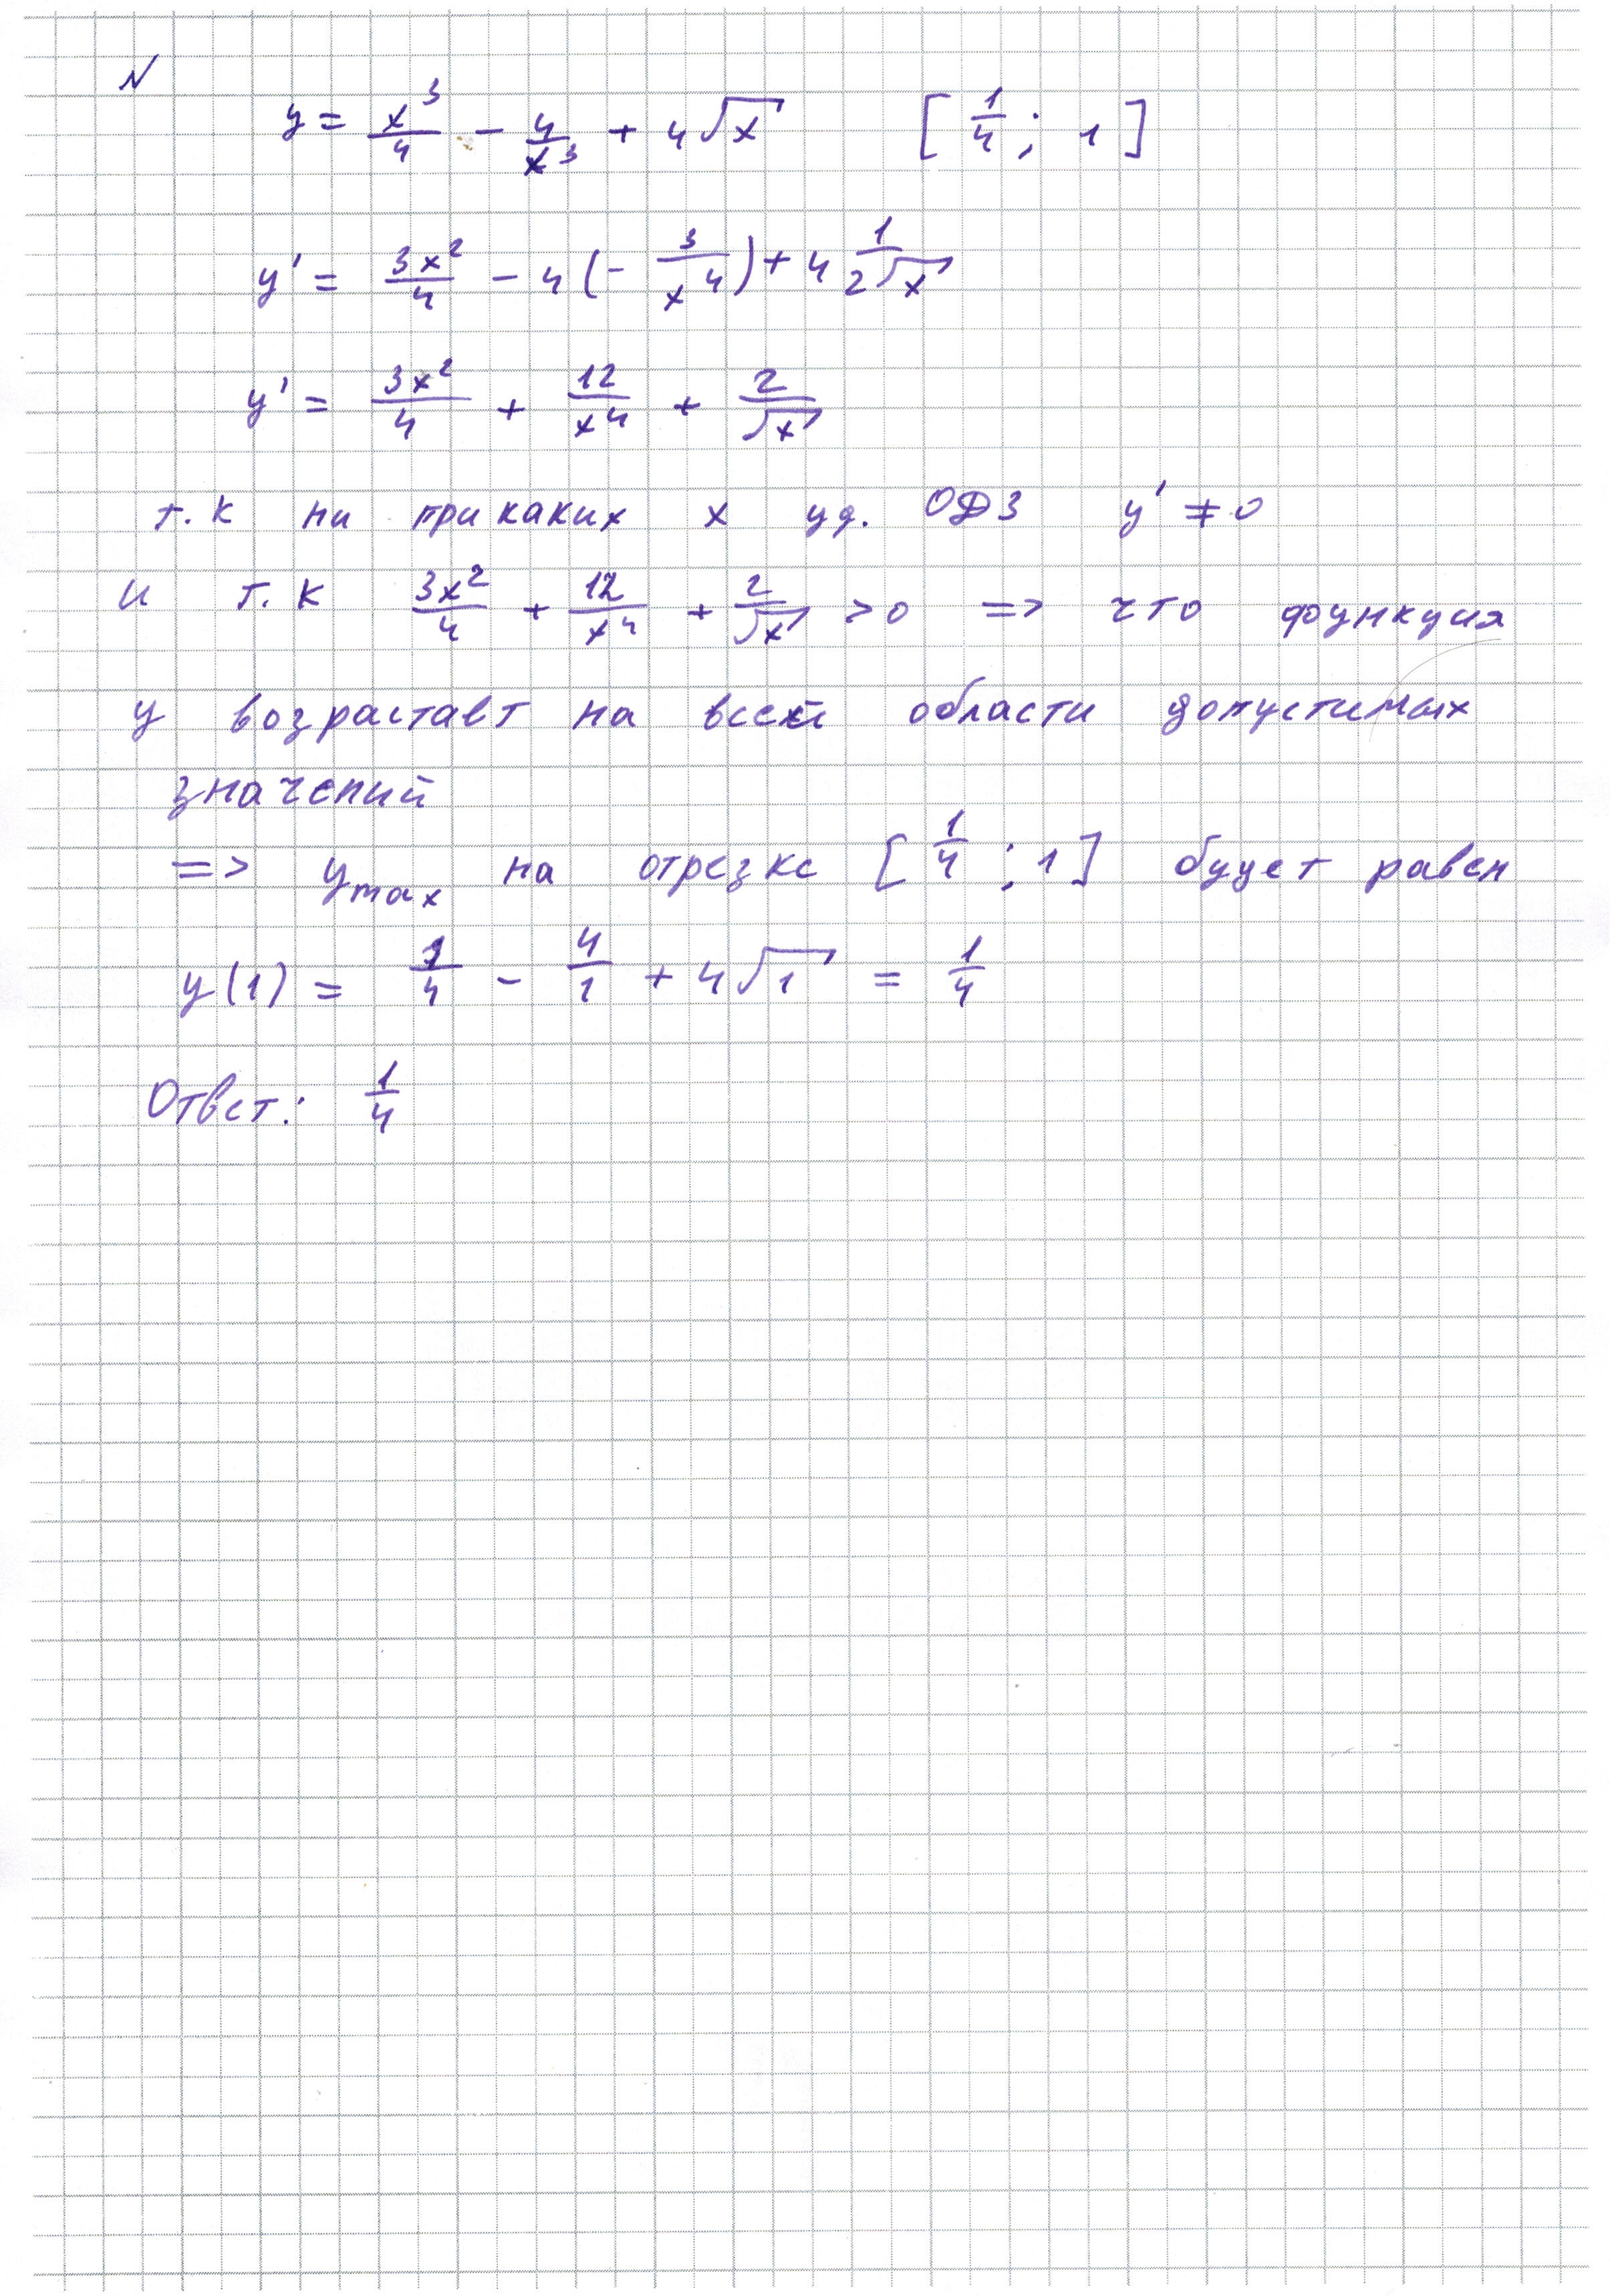 N
y = x³/4 - 4/x³ + 4√x [1/4; 1]
y' = 3x²/4 - 4(-3/x⁴) + 4 1/(2√x)
y' = 3x²/4 + 12/x⁴ + 2/√x
т.к ни при каких х уд. ОДЗ y' ≠ 0
и т.к 3x²/4 + 12/x⁴ + 2/√x > 0 => что функция
у возрастает на всей области допустимых
значений
=> ymax на отрезке [1/4; 1] будет равен
y(1) = 1/4 - 4/1 + 4√1 = 1/4
Ответ: 1/4